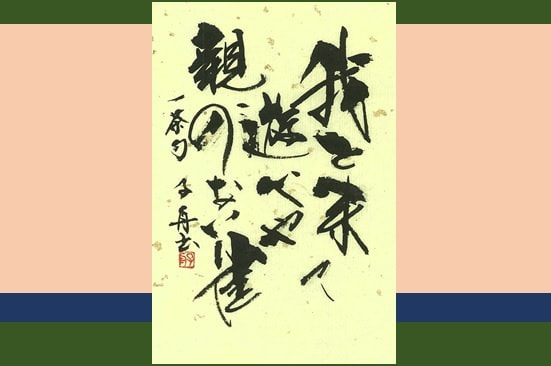 我と来て
遊べや
親のない雀
一茶句 子舟書